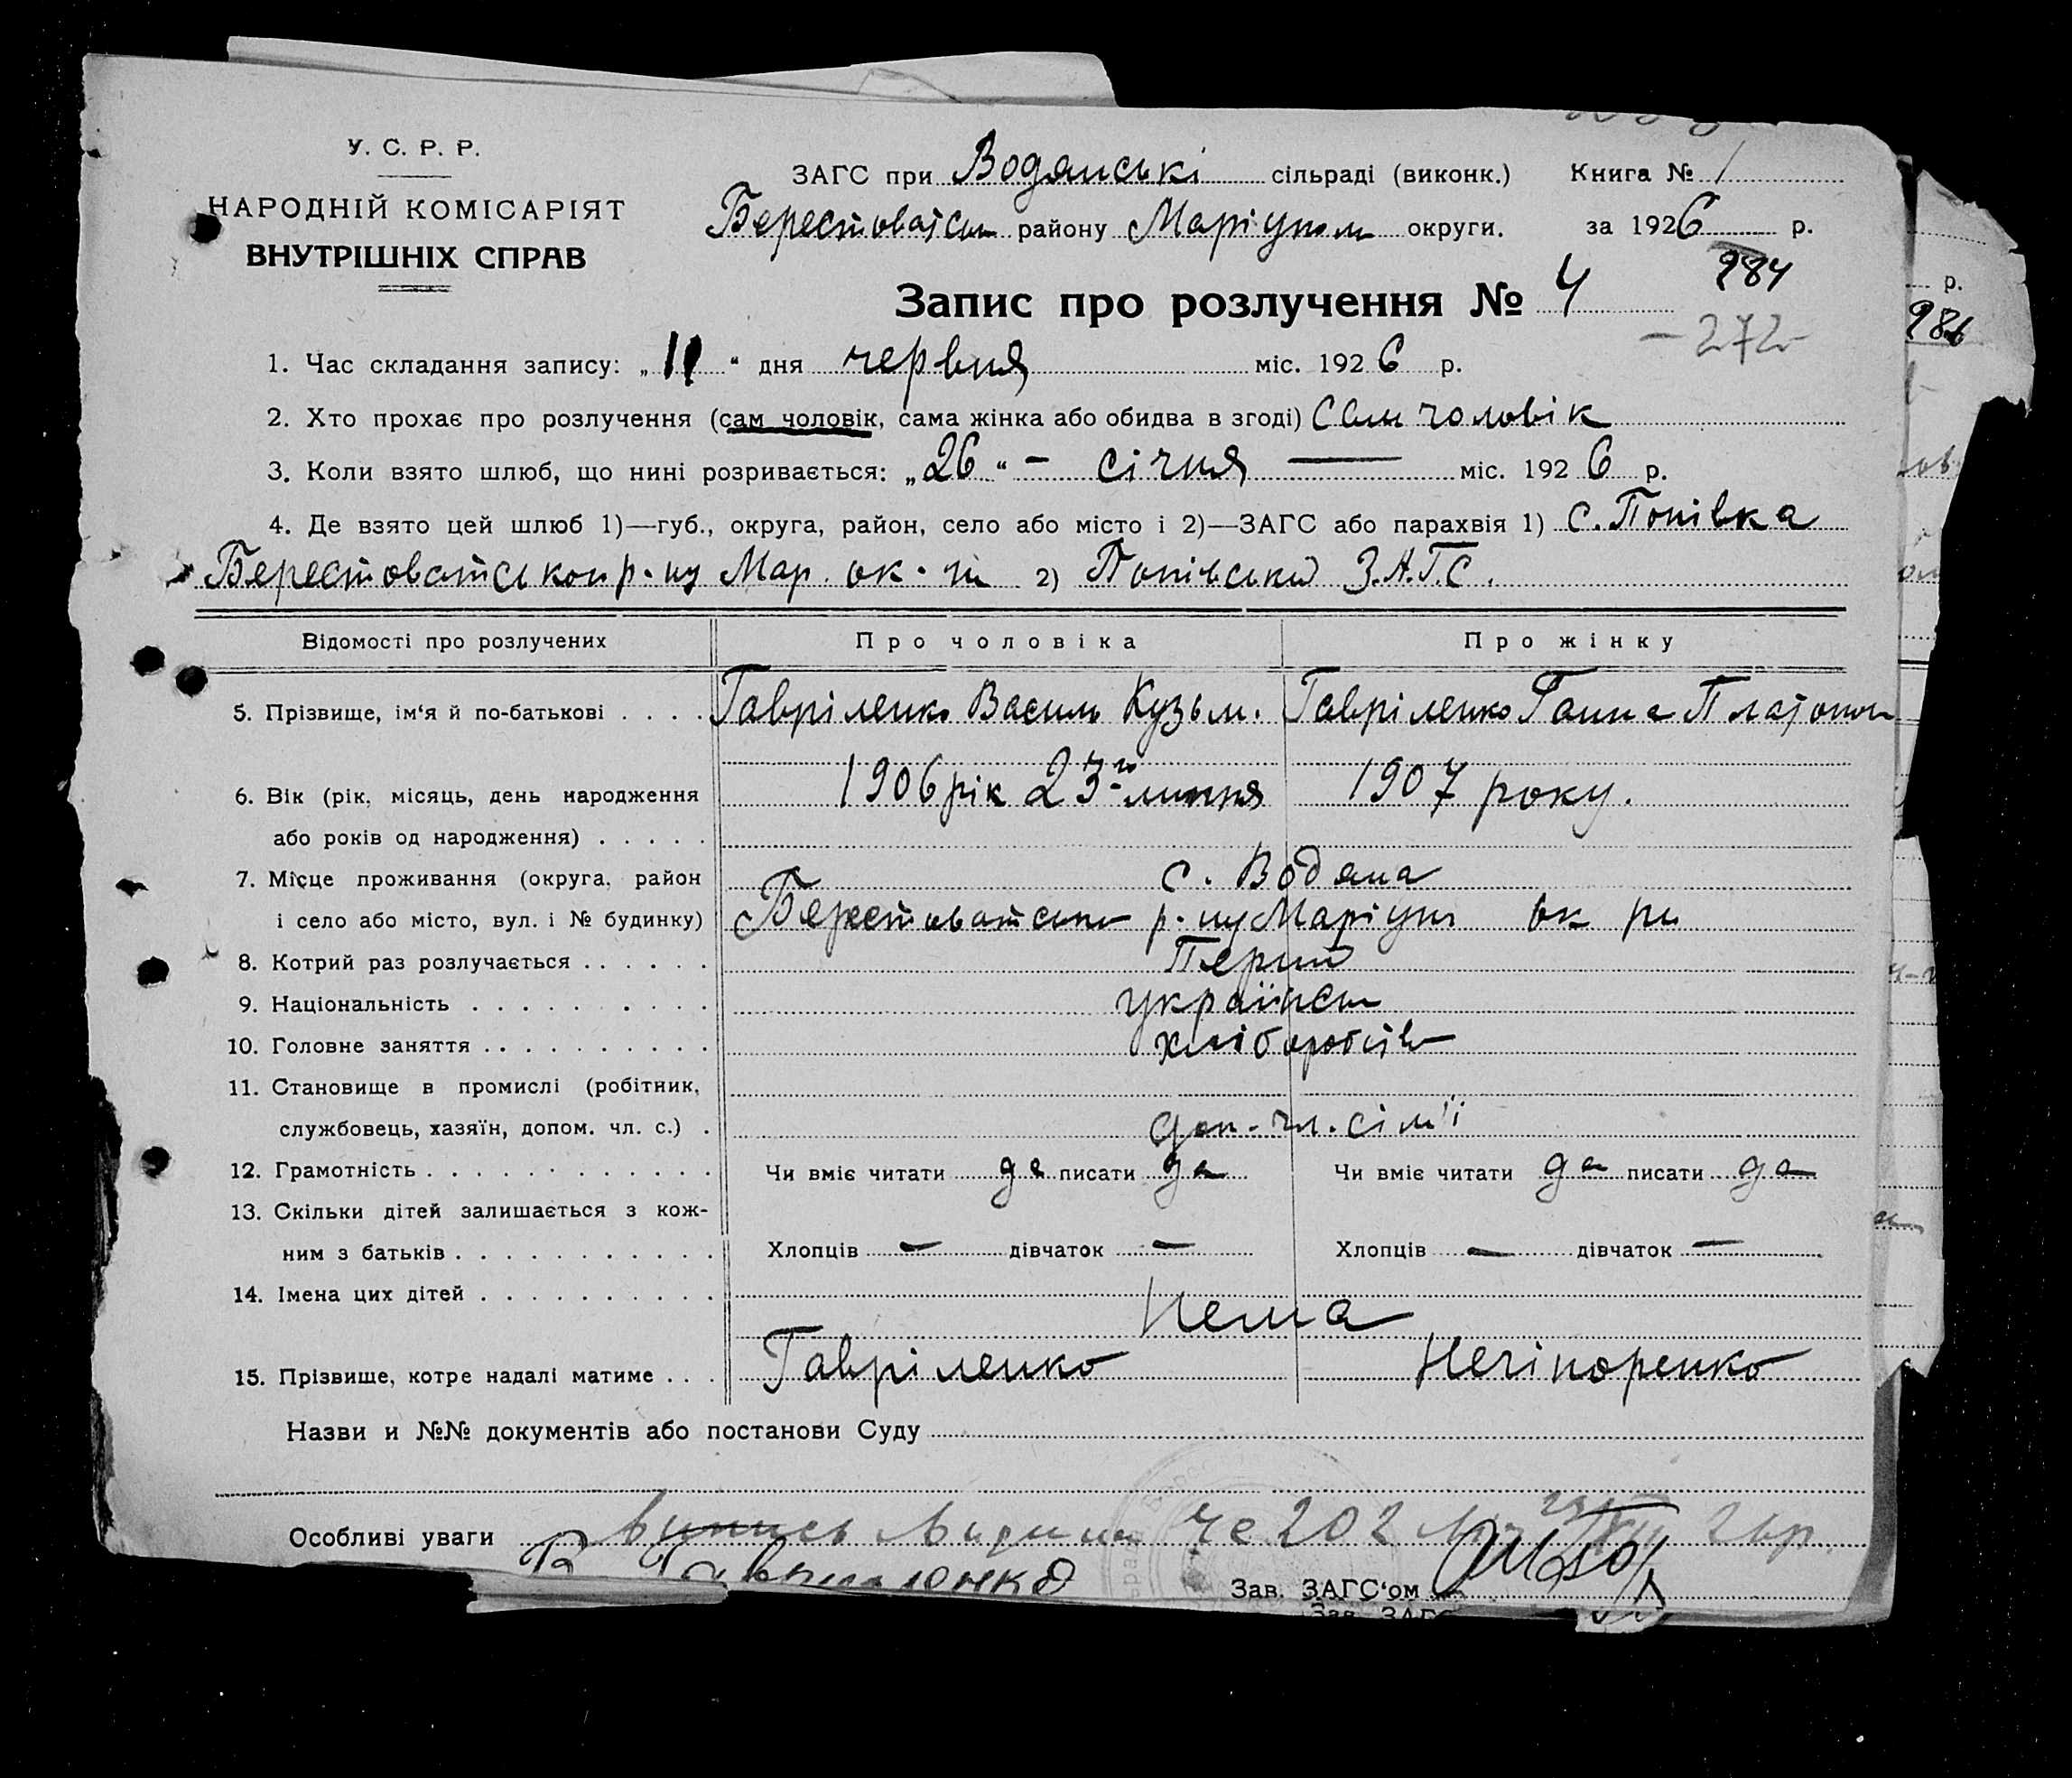 У. С. Р. Р.
НАРОДНІЙ КОМІСАРІЯТ
ВНУТРІШНІХ СПРАВ
ЗАГС при Водянські сільраді (виконк.) Книга № 1
Берестоватськ району Маріупол округи. за 1926 р.
984
Запис про розлучення № 4
- 272 -
1. Час складання запису: „11“ дня червня міс. 1926 р.
2. Хто прохає про розлучення (сам чоловік, сама жінка або обидва в згоді) Сам чоловік
3. Коли взято шлюб, що нині розривається: „26“ - січня — міс. 1926 р.
4. Де взято цей шлюб 1)—губ., округа, район, село або місто і 2)—ЗАГС або парахвія 1) с. Попівка
Берестоватськ р-ну Мар. ок. 2) Попівський З.А.Г.С.
Відомості про розлучених Про чоловіка Про жінку
5. Прізвище, ім'я й по-батькові . . . . Гавріленко Василь Кузьм. Гавріленко Ганна Платонов
6. Вік (рік, місяць, день народження 1906 рік 23-го липня 1907 року.
або років од народження) . . . . .
7. Місце проживання (округа, район с. Водяна
і село або місто, вул. і № будинку) Берестоватськ р-ну Маріуп ок ри
8. Котрий раз розлучається . . . . . . Перший
9. Національність . . . . . . . . . українськ
10. Головне заняття . . . . . . . . . . хліборобсть
11. Становище в промислі (робітник,
службовець, хазяїн, допом. чл. с.) . доп. чл. сім'ї
12. Грамотність . . . . . . . . . . . . Чи вміє читати да писати да Чи вміє читати да писати да
13. Скільки дітей залишається з кож-
ним з батьків . . . . . . . . . . . Хлопців — дівчаток — Хлопців — дівчаток —
14. Імена цих дітей . . . . . . . . . . Нема
15. Прізвище, котре надалі матиме . . . Гавріленко Нечіпоренко
Назви и №№ документів або постанови Суду
Особливі уваги
В Гавриленко
Зав. ЗАГС'ом
Зав. ЗАГС
р.
986